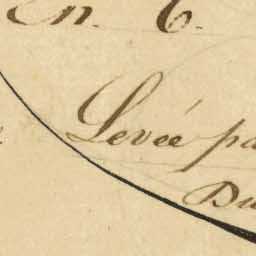 En. 6.
Levée pa
Du